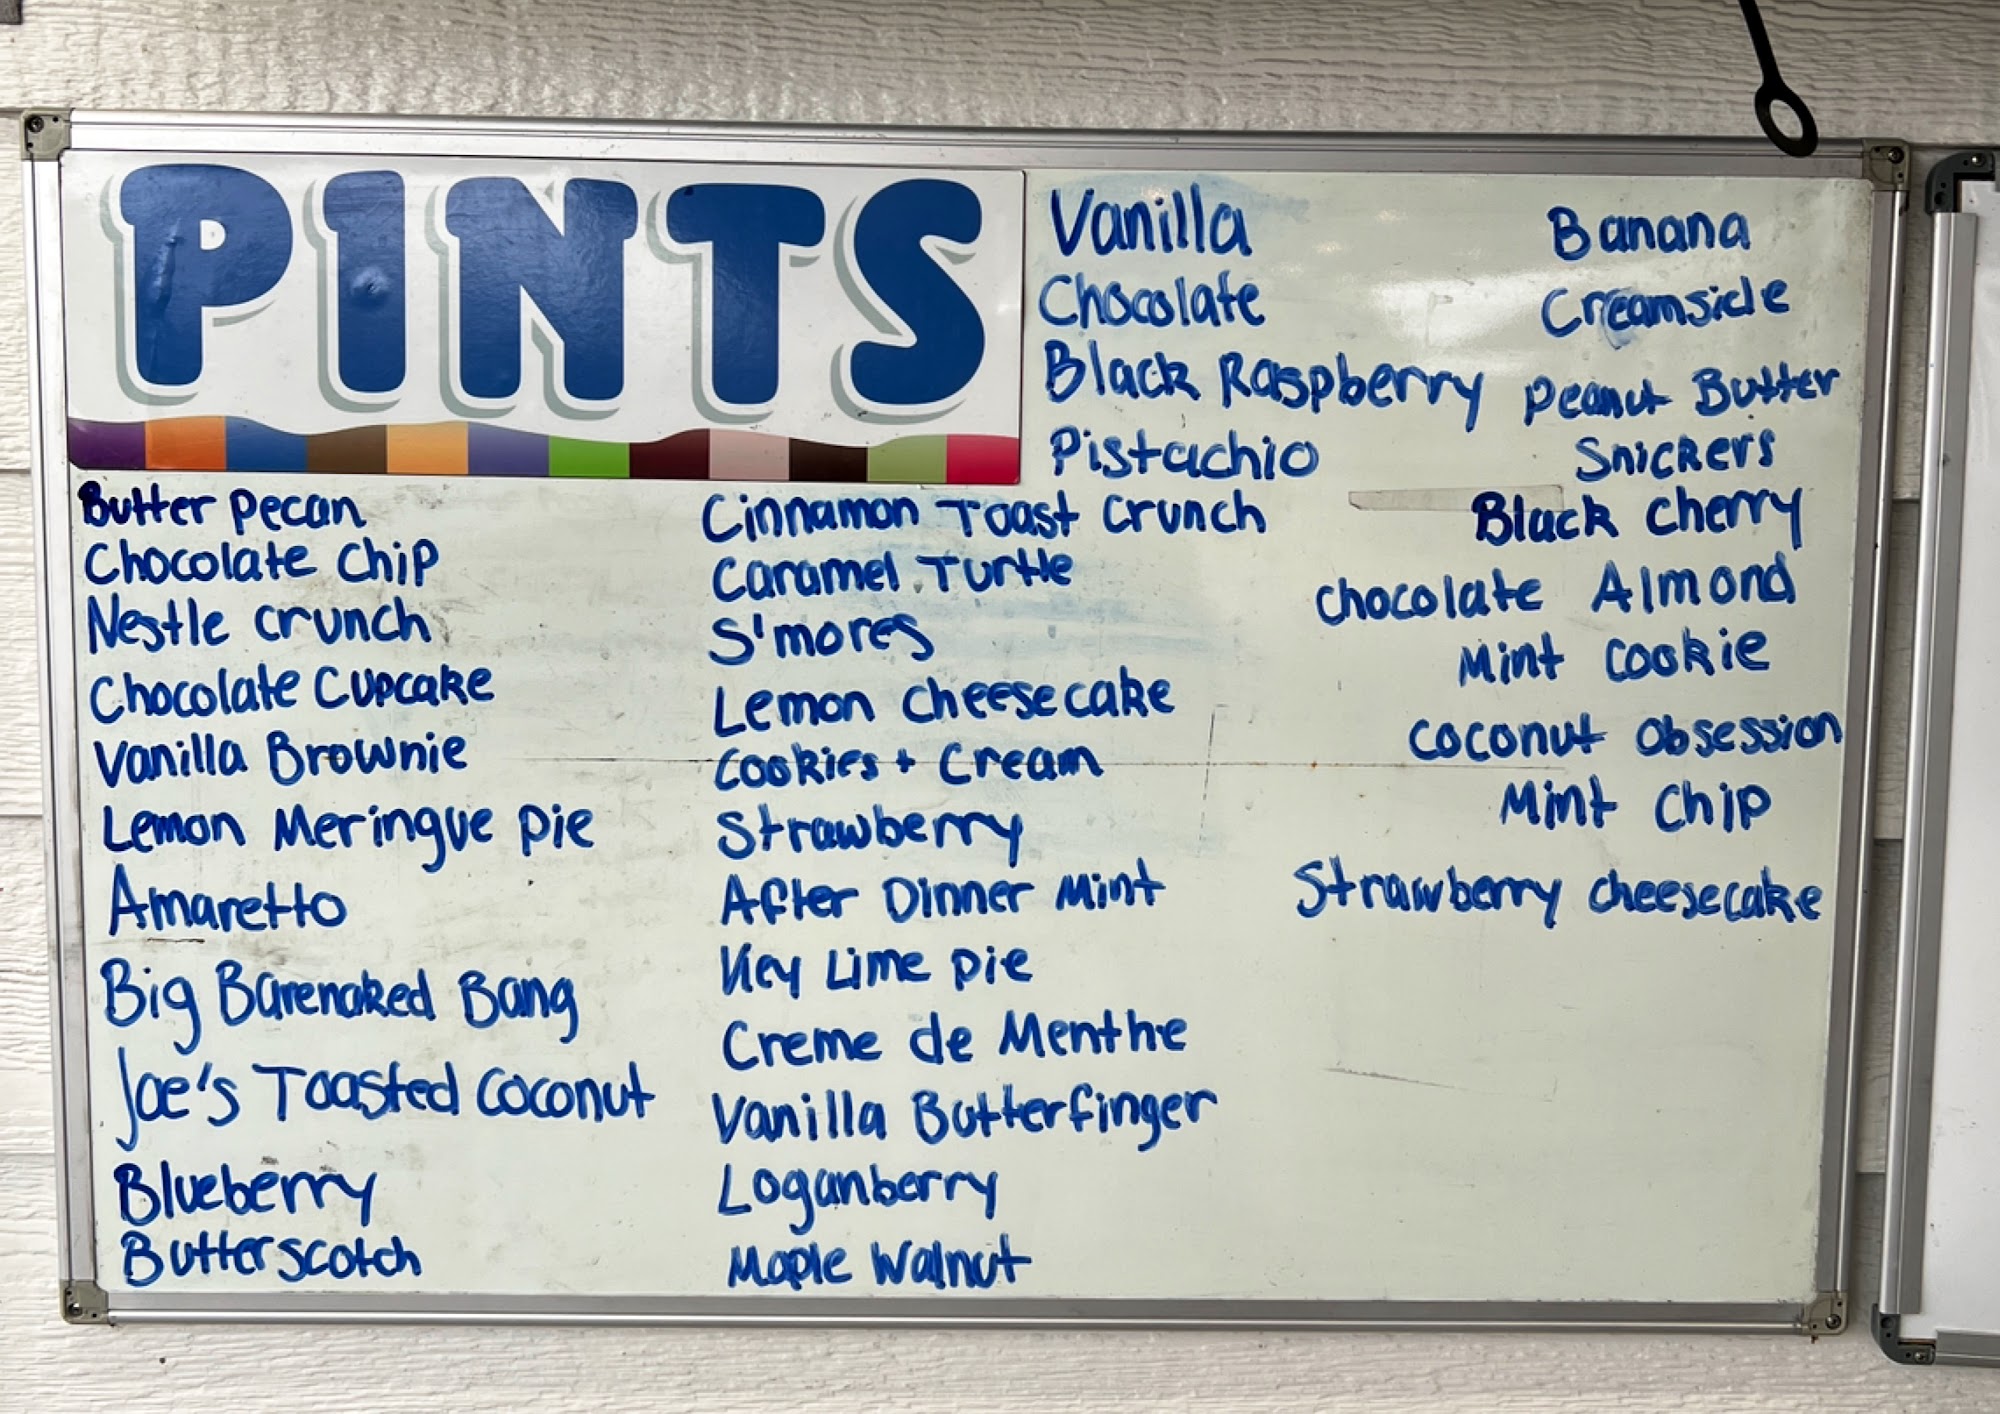 PINTS
Butter Pecan
Chocolate Chip
Nestle Crunch
Chocolate Cupcake
Vanilla Brownie
Lemon Meringue Pie
Amaretto
Big Barenaked Bang
Joe's Toasted Coconut
Blueberry
Butterscotch
Vanilla
Chocolate
Black Raspberry
Pistachio
Cinnamon Toast Crunch
Caramel Turtle
S'mores
Lemon Cheesecake
Cookies + Cream
Strawberry
After Dinner Mint
Key Lime Pie
Creme de Menthe
Vanilla Butterfinger
Loganberry
Maple Walnut
Banana
Creamsicle
Peanut Butter
Snickers
Black Cherry
Chocolate Almond
Mint Cookie
Coconut Obsession
Mint Chip
Strawberry Cheesecake